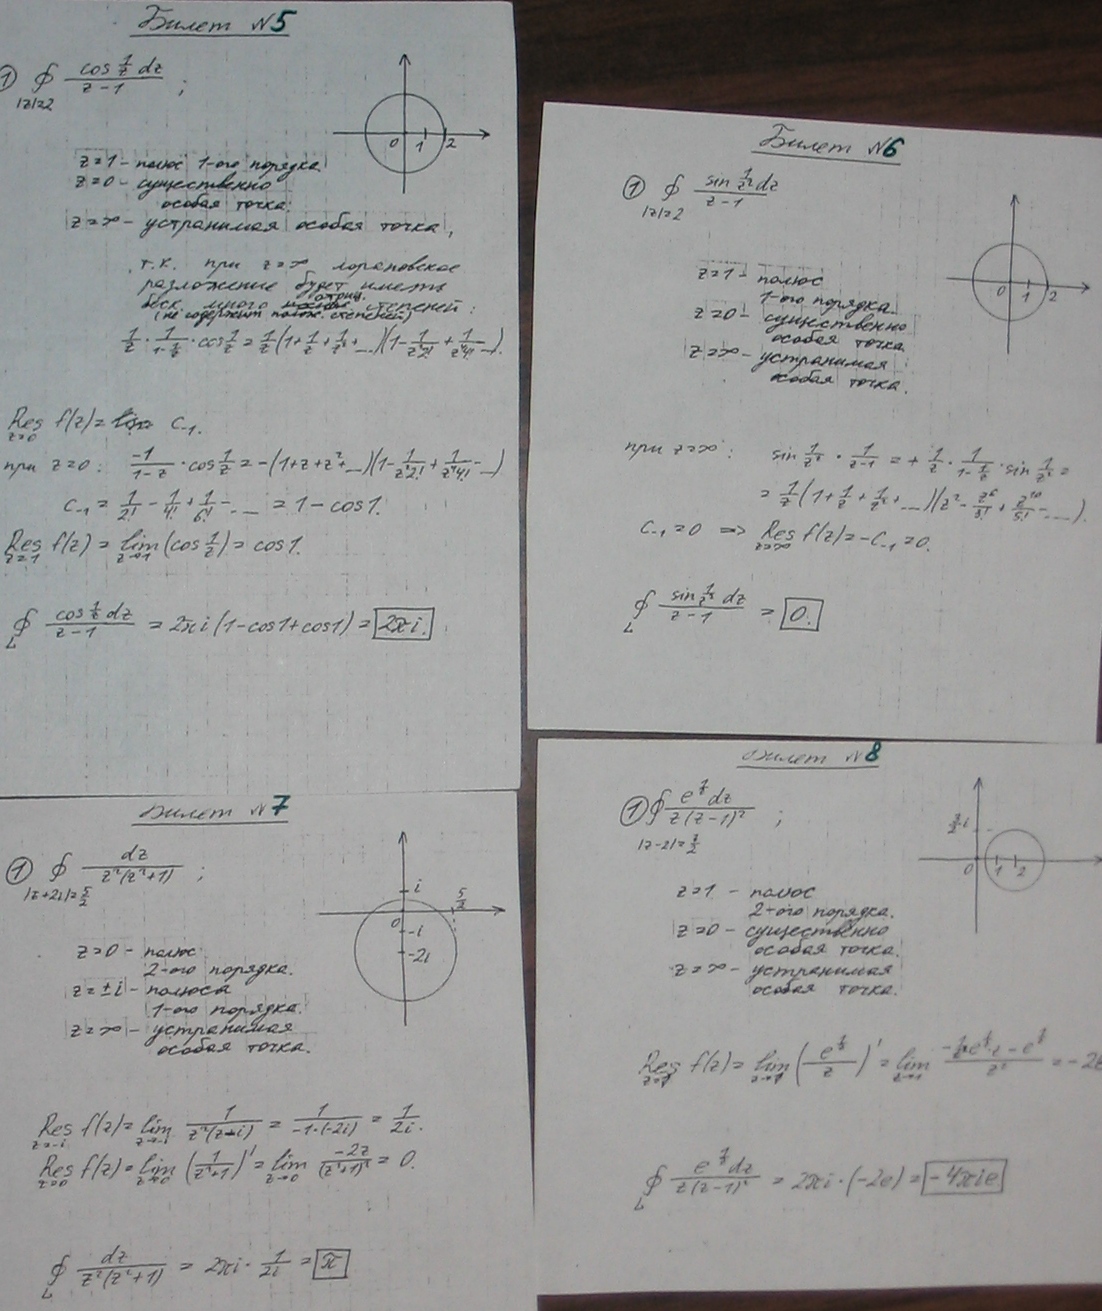 Билет №5
① ∮ cos 1/z dz / z-1 ;
|z|=2
0 1 2
z=1 - полюс 1-ого порядка.
z=0 - существенно
особая точка.
z=∞ - устранимая особая точка,
т.к. при z=∞ лорановское
разложение будет иметь
беск. много отриц. степеней:
(не содержит полож. степеней)
1/z · 1/(1-1/z) · cos 1/z = 1/z (1+1/z+1/z²+...)(1-1/(z²2!)+1/(z⁴4!)-...).
Res f(z) = c₋₁.
z=0
при z=0: -1/(1-z) · cos 1/z = -(1+z+z²+...)(1-1/(z²2!)+1/(z⁴4!)-...)
c₋₁ = 1/2! - 1/4! + 1/6! - ... = 1-cos1.
Res f(z) = lim (cos 1/z) = cos1.
z=1 z→1
∮ cos 1/z dz / z-1 = 2πi(1-cos1+cos1) = 2πi.
L
Билет №6
① ∮ sin 1/z² dz / z-1
|z|=2
0 1 2
z=1 - полюс
1-ого порядка.
z=0 - существенно
особая точка.
z=∞ - устранимая
особая точка.
при z=∞: sin 1/z² · 1/(z-1) = + 1/z · 1/(1-1/z) · sin 1/z² =
= 1/z (1+1/z+1/z²+...)(z²-z⁶/3!+z¹⁰/5!-...).
c₋₁=0 ⇒ Res f(z)=-c₋₁=0.
z=∞
∮ sin 1/z² dz / z-1 = 0.
L
Билет №7
① ∮ dz / z²(z²+1) ;
|z+2i|=5/2
i
5/2
0
-i
-2i
z=0 - полюс
2-ого порядка.
z=±i - полюса
1-ого порядка.
z=∞ - устранимая
особая точка.
Res f(z) = lim 1/(z²(z-i)) = 1/(-1·(-2i)) = 1/2i.
z=-i z→-i
Res f(z) = lim (1/(z²+1))' = lim -2z/(z²+1)² = 0.
z=0 z→0 z→0
∮ dz / z²(z²+1) = 2πi · 1/2i = π
L
Билет №8
① ∮ e^(1/z) dz / z(z-1)² ;
|z-2|=3/2
3/2 i
0 1 2
z=1 - полюс
2-ого порядка.
z=0 - существенно
особая точка.
z=∞ - устранимая
особая точка.
Res f(z) = lim (e^(1/z)/z)' = lim (-1/z e^(1/z) - e^(1/z))/z² = -2e
z=1 z→1 z→1
∮ e^(1/z) dz / z(z-1)² = 2πi·(-2e) = -4πie
L